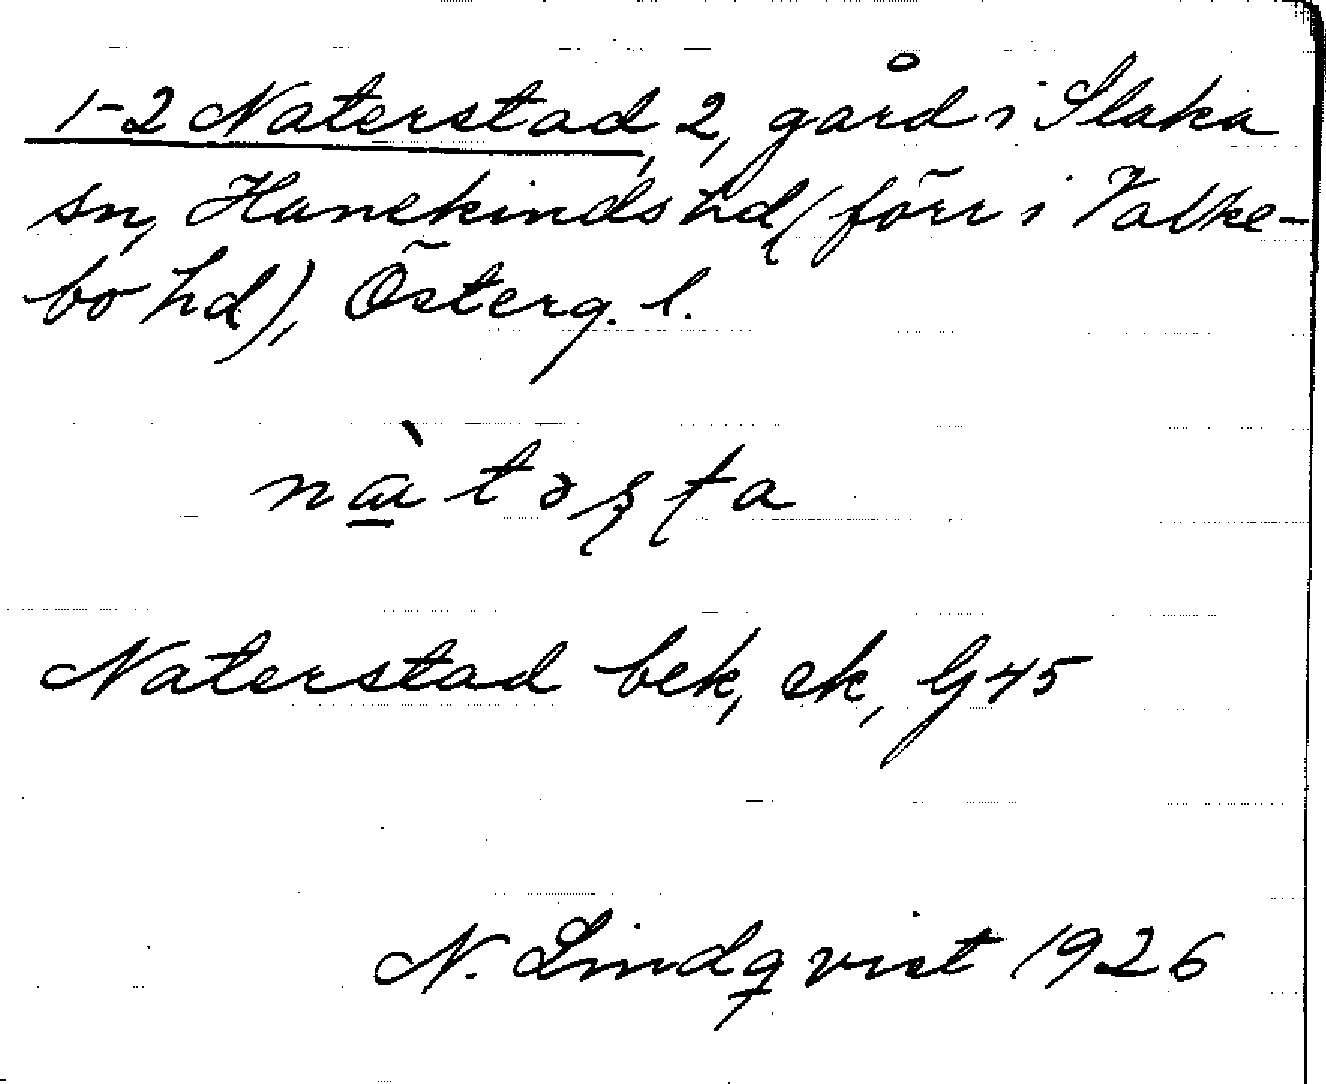 1-2 Naterstad, 2, gård i Slaka
sn, Hanekinds hd (förr i Valke-
bo hd), Österg. l.
nɑ̠̀təʂʈa
Naterstad bek, ek, Gj 45
N. Lindqvist 1926